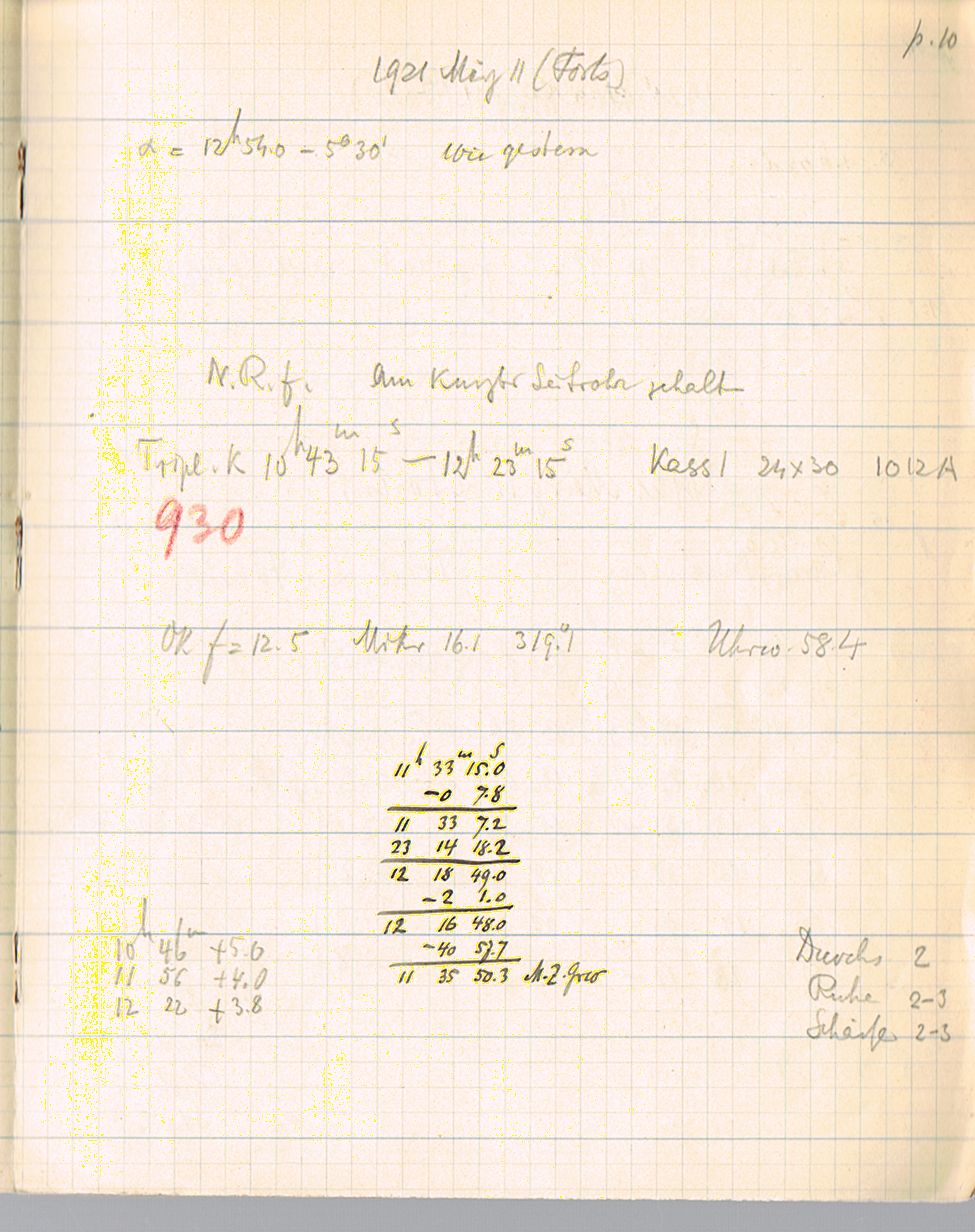 p. 10
1921 März 11 (Forts)
α = 12h54.0 – 5°30' wie gestern
N.R.f. Am Kurzbr Leitrohr gehalt
Tripl. K 10h 43m 15s — 12h 23m 15s Kass I 24x30 1012A
930
OK f = 12.5 Mikr 16.1 319.°1 Uhrw. 58.4
11h 33m 15.0s
–0 7.8
11 33 7.2
23 14 18.2
12 18 49.0
–2 1.0
12 16 48.0
–40 57.7
11 35 50.3 M.Z. Grw
10h 46m +5.0
11 56 +4.0
12 22 +3.8
Durchs 2
Ruhe 2–3
Schärfe 2–3